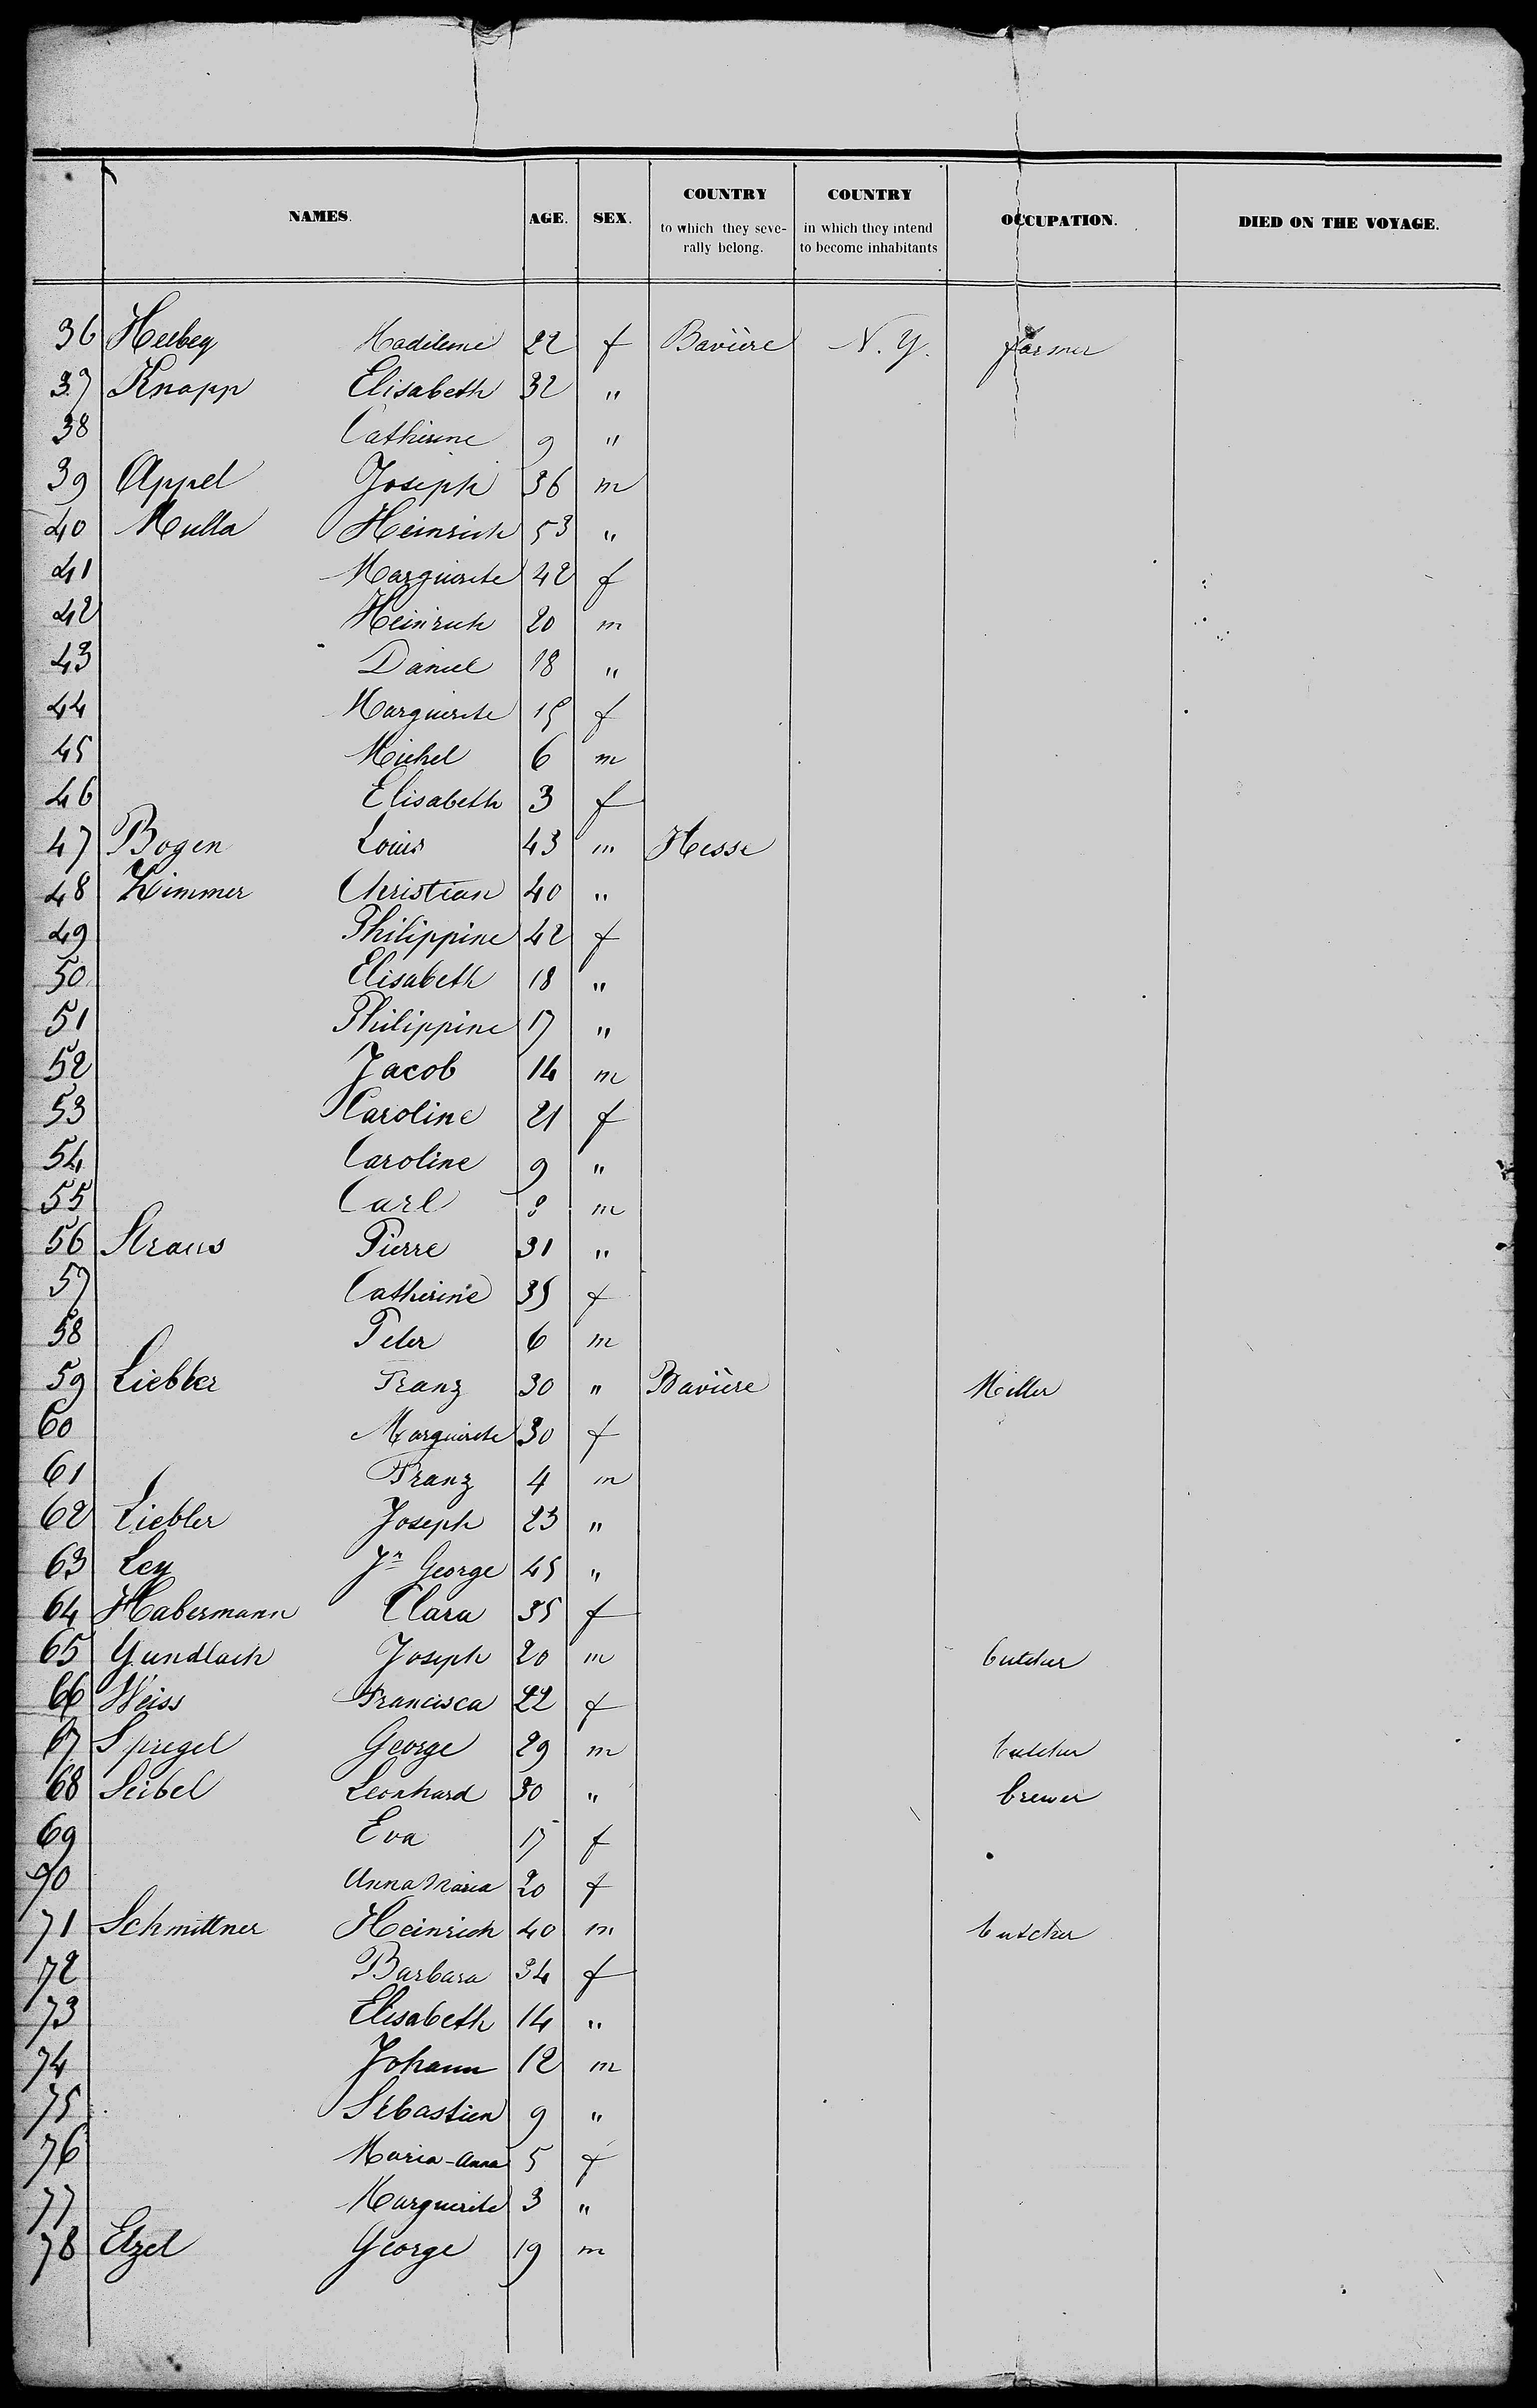 NAMES. AGE. SEX. COUNTRY to which they seve-rally belong. COUNTRY in which they intend to become inhabitants OCCUPATION. DIED ON THE VOYAGE.
36 Madilene 22 f Bavière N. Y. farmer
37 Knapp Elisabeth 32 "
38 Catherine 9 "
39 Appel Joseph 36 m
40 Mulla Heinrich 53 "
41 Marguerite 42 f
42 Heinrich 20 m
43 Daniel 18 "
44 Marguerite 15 f
45 Michel 6 m
46 Elisabeth 3 f
47 Bogen Louis 43 m Hesse
48 Zimmer Christian 40 "
49 Philippine 42 f
50 Elisabeth 18 "
51 Philippine 17 "
52 Jacob 14 m
53 Caroline 21 f
54 Caroline 9 "
55 Carl 8 m
56 Straus Pierre 31 "
57 Catherine 35 f
58 Peter 6 m
59 Liebler Franz 30 " Bavière Miller
60 Marguerite 30 f
61 Franz 4 m
62 Liebler Joseph 23 "
63 Ley Jn George 45 "
64 Habermann Clara 35 f
65 Gundlach Joseph 20 m butcher
66 Weiss Francisca 22 f
67 Spiegel George 29 m butcher
68 Seibel Leonhard 30 " brewer
69 Eva 17 f
70 Anna Maria 20 f
71 Schmittner Heinrich 40 m butcher
72 Barbara 34 f
73 Elisabeth 14 "
74 Johann 12 m
75 Sebastien 9 "
76 Maria-Anna 5 f
77 Marguerite 3 "
78 Etzel George 19 m